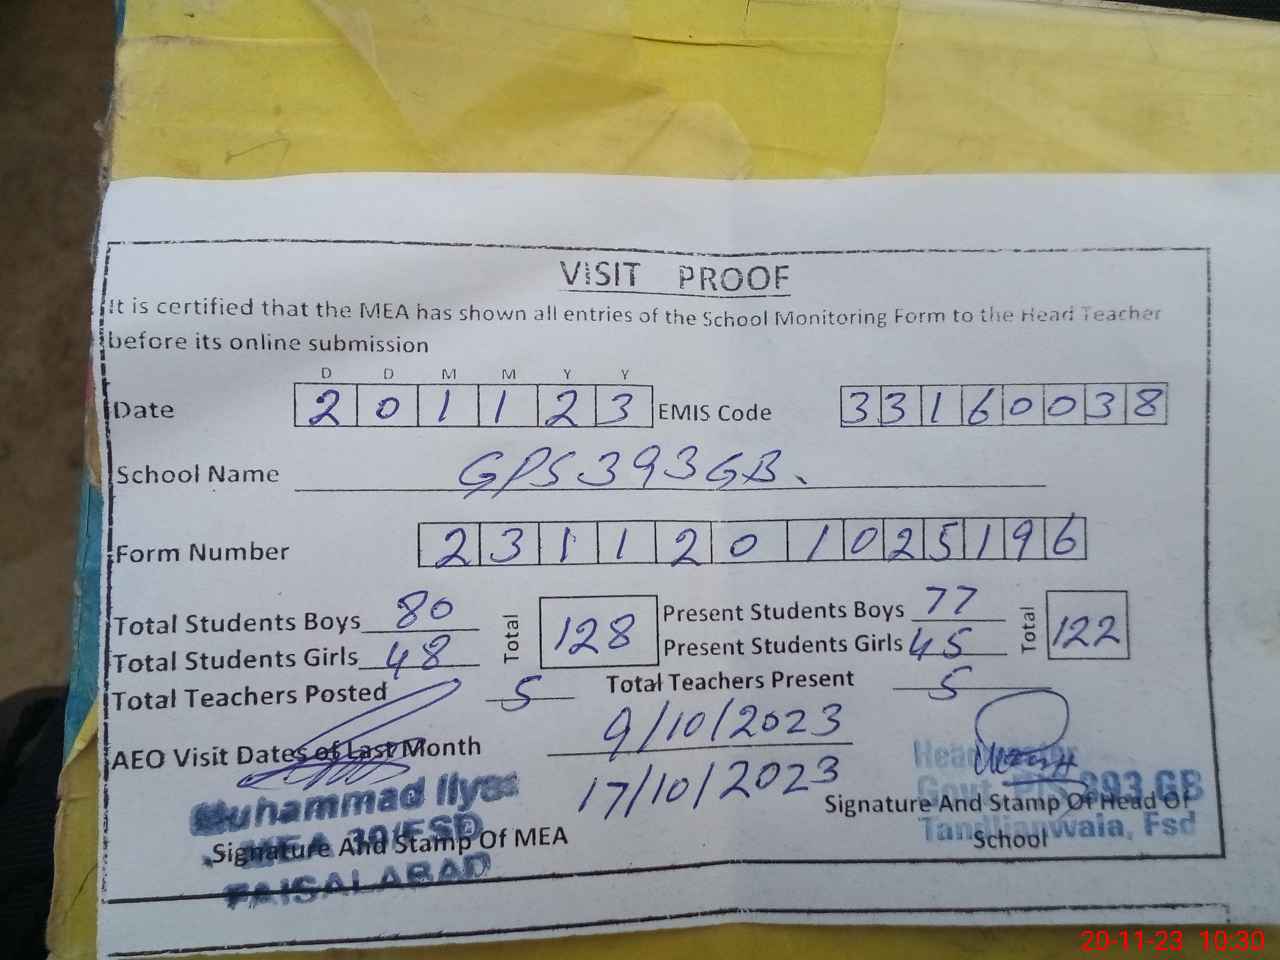 VISIT PROOF
It is certified that the MEA has shown all entries of the School Monitoring Form to the Head Teacher
before its online submission
D D M M Y Y
Date 2 0 1 1 2 3 EMIS Code 3 3 1 6 0 0 3 8
School Name GPS 393 GB.
Form Number 2 3 1 1 2 0 1 0 2 5 1 9 6
Total Students Boys 80 Total 128 Present Students Boys 77 Total 122
Total Students Girls 48 Present Students Girls 45
Total Teachers Posted 5 Total Teachers Present 5
AEO Visit Dates of Last Month 9/10/2023
17/10/2023
Muhammad Ilyas
MEA 30/FSD
FAISALABAD
Signature And Stamp Of MEA
Headmaster
Govt. P/S 393 GB
Tandlianwala, Fsd
Signature And Stamp Of Head Of
School
20-11-23 10:30